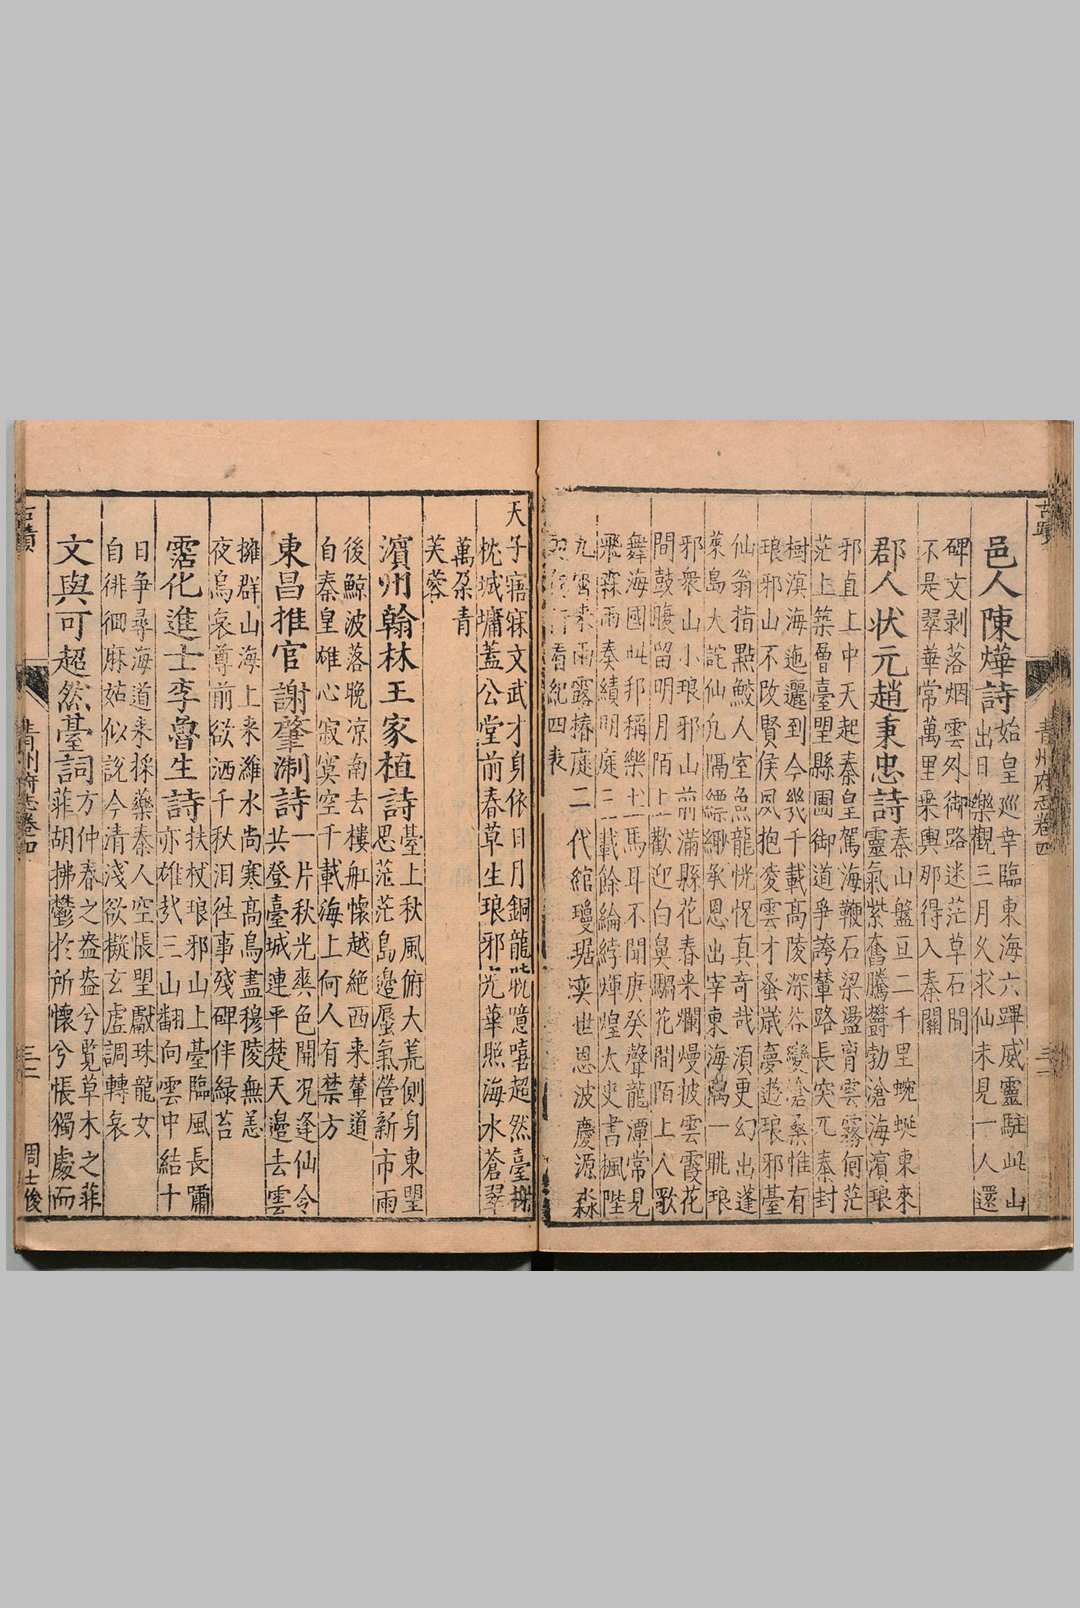 古蹟　青州府志卷四　三二
邑人陳燁詩
始皇巡幸臨東海六蹕威靈駐此山
出日樂觀三月久求仙未見一人還
碑文剥落烟雲外御路迷茫草石間
不是翠華常萬里乗輿那得入秦關
郡人状元趙秉忠詩
秦山盤亘二千里蜿蜒東來
靈氣紫奮騰鬱勃滄海濱琅
邪直上中天起秦皇駕海鞭石梁盪胷雲霧何茫
茫上築層臺望縣圃御道爭誇輦路長突兀秦封
樹滇海迤邐到今幾千載高陵深谷變滄桑惟有
琅邪山不改賢侯夙抱夌雲才蚤歲夢逰琅邪臺
仙翁指點鮫人室魚龍恍惚真奇哉須更幻出蓬
萊島大詫仙凢隔縹緲承恩出宰東海隅一眺琅
邪衆山小琅邪山前滿縣花春来爛熳披雲霞花
間鼓暖留明月陌上歡迎白鼻騧花間陌上人歌
舞海國此邦稱樂土馬耳不聞庚癸聲龍潭常見
飛霖雨奏績明庭三載餘綸綍煇煌太史書楓陛
九霄来雨露椿庭二代綰瓊琚奕世恩波慶源淼
看紀四表
天子寤寐文武才身依日月銅龍噫嘻超然臺榭
枕城墉蓋公堂前春草生琅邪光華照海水蒼翠
萬朶青
芙蓉
濱州翰林王家植詩
臺上秋風俯大荒側身東望
思茫茫島邊蜃氣營新市雨
後鯨波落晚凉南去樓舡懐越絶西来輦道
自秦皇雄心寂寞空千載海上何人有禁方
東昌推官謝肇淛詩
一片秋光爽色開况逢仙令
共登臺城連平楚天邉去雲
擁群山海上来濰水尚寒高鳥盡穆陵無恙
夜烏哀尊前欲洒千秋泪徃事殘碑伴緑苔
霑化進士李魯生詩
扶杖琅邪山上臺臨風長嘯
亦雄哉三山翻向雲中結十
日争尋海道来採藥秦人空悵望獻珠龍女
自徘徊麻姑似說今清淺欲擬玄虛調轉哀
文與可超然臺詞
方仲春之盎盎兮覧草木之菲
菲胡拂鬱於所懐兮悵獨處而
古蹟　青州府志卷四　三二　周士俊